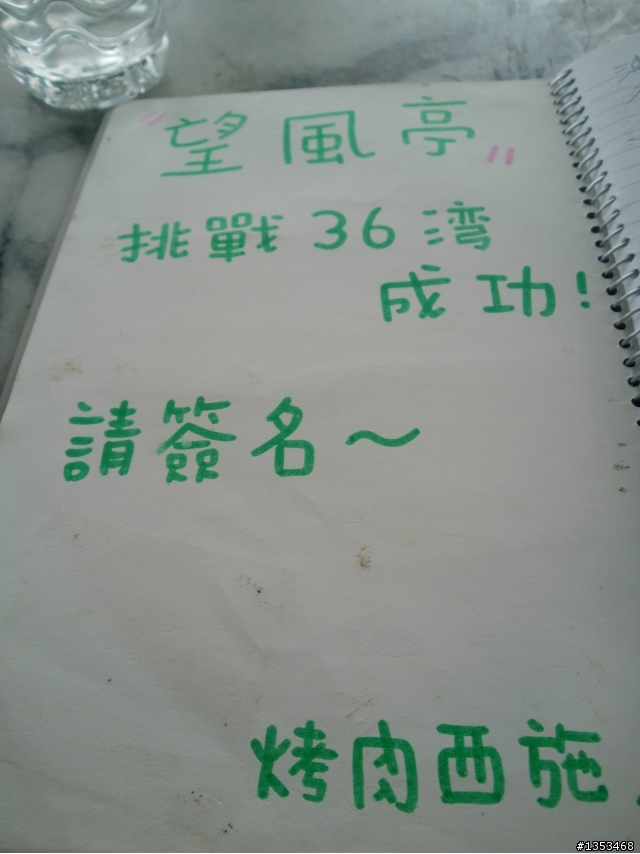 "望風亭"
挑戰36湾
成功!
請簽名～
烤肉西施
#1353468